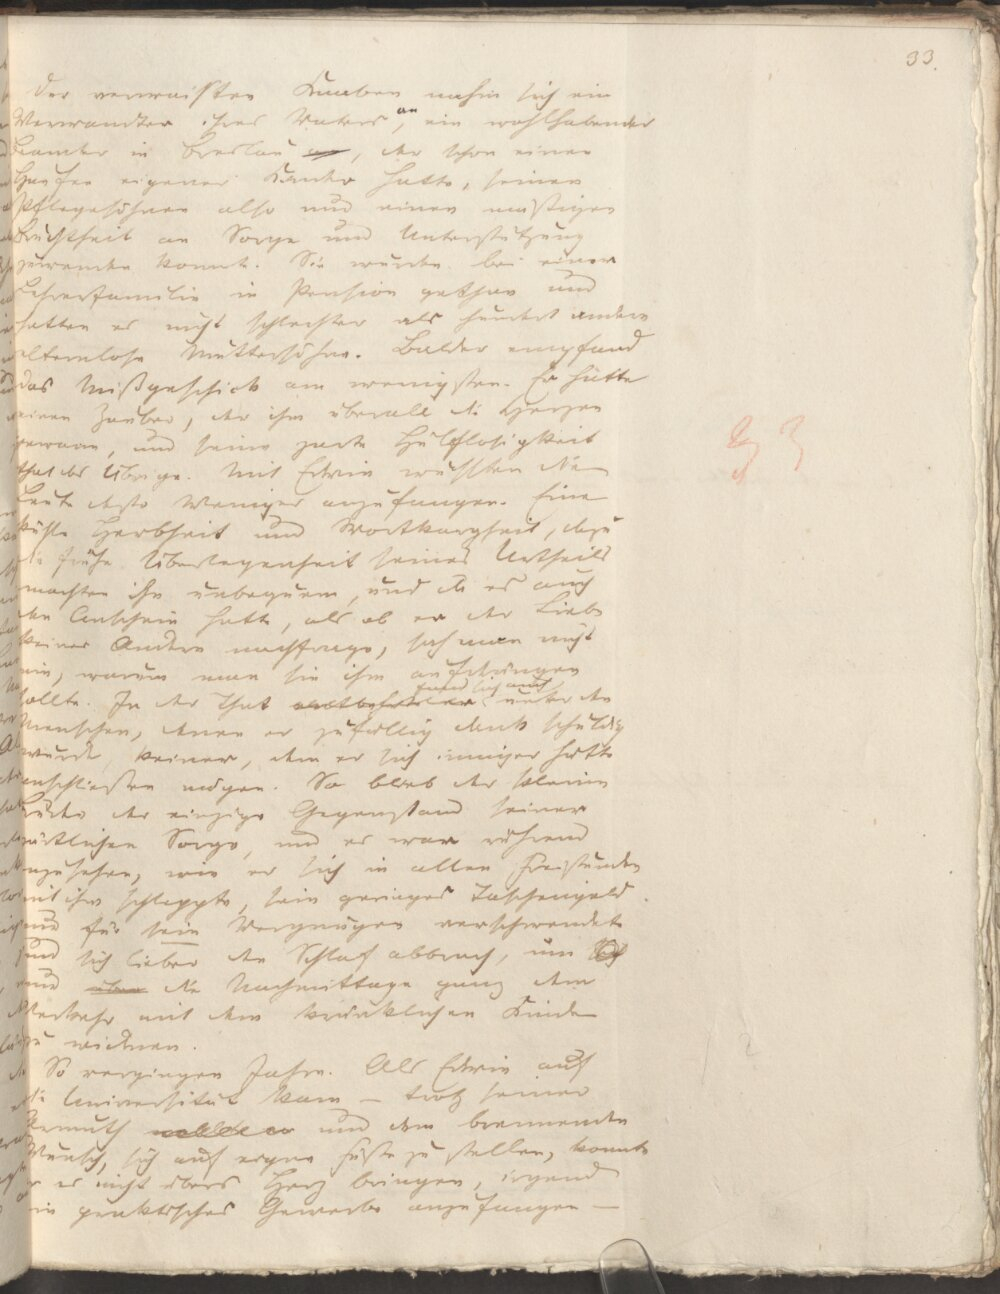 33.
Der verwaisten Knaben nahm sich ein
Verwandter ihres Vaters an, ein wohlhabender
Beamter in Breslau, der schon einen
Haufen eigener Kinder hatte, seinen
Pflegesöhnen also nur einen mäßigen
Bruchtheil an Sorge und Unterstützung
zuwenden konnte. Sie wurden bei einer
Lehrerfamilie in Pension gethan und
hatten es nicht schlechter als hundert andere
elternlose Muttersöhne. Balder empfand
das Mißgeschick am wenigsten. Er hatte
einen Zauber, der ihm überall die Herzen
gewann, und seine zarte Hülflosigkeit
that das Übrige. Mit Edwin wußten die
Leute desto weniger anzufangen. Eine
kühle Herbheit und Wortkargheit, dazu
die frühe Überlegenheit seines Urtheils
machten ihn unbequem, und da es auch
den Anschein hatte, als ob er der Liebe
keines Andern nachfrage, sah man nicht
ein, warum man sie ihm aufdringen
sollte. In der That fand sich auch unter den
Menschen, denen er zufällig Dank schuldig
wurde, keiner, dem er sich inniger hätte
anschließen mögen. So blieb der kleine
Bruder der einzige Gegenstand seiner
zärtlichen Sorge, und es war rührend
anzusehen, wie er sich in allen Freistunden
mit ihm schleppte, sein geringes Taschengeld
nur für sein Vergnügen verschwendete
und sich lieber den Schlaf abbrach, um
nur die Nachmittage ganz dem
Verkehr mit dem kränklichen Kinde
zu widmen.
So vergingen Jahre. Als Edwin auf
die Universität kam – trotz seiner
Armuth und dem brennenden
Wunsch, sich auf eigne Füße zu stellen, konnte
er es nicht übers Herz bringen, irgend
ein praktisches Gewerbe anzufangen –